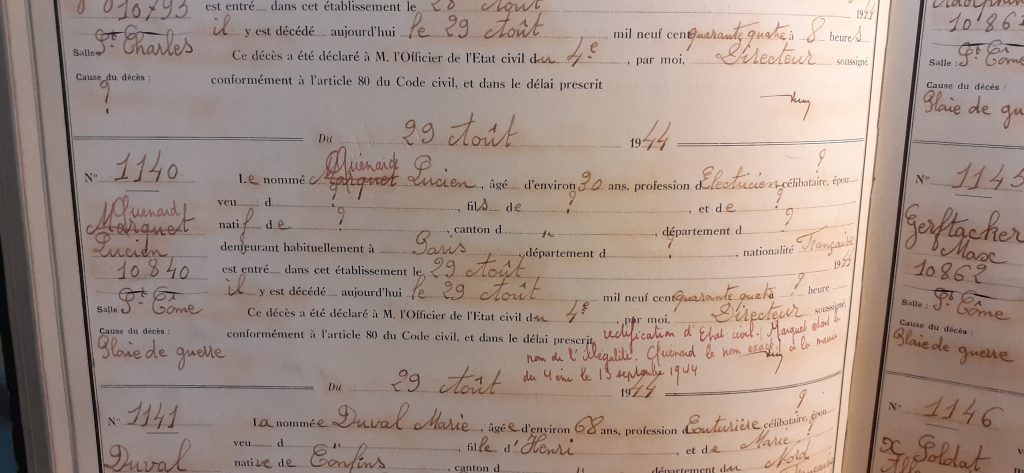 10793 est entré dans cet établissement le 28 Août 1944
St Charles il y est décédé aujourd'hui le 29 Août mil neuf cent quarante quatre à 8 heures
Salle Ce décès a été déclaré à M. l'Officier de l'Etat civil du 4e, par moi, Directeur soussigné
Cause du décès : conformément à l'article 80 du Code civil, et dans le délai prescrit
?
Du 29 Août 1944
Quenard
N° 1140 Le nommé Marquet Lucien, âgé d'environ 30 ans, profession d'Electricien célibataire, épou ?
Quenard veu d ?, fils de ?, et de ?
Marquet natif de ?, canton d ", département d ?
Lucien demeurant habituellement à Paris, département d ?, nationalité Française
10840 est entré dans cet établissement le 29 Août 1944
St Côme il y est décédé aujourd'hui le 29 Août mil neuf cent quarante quatre ? heure
Salle Ce décès a été déclaré à M. l'Officier de l'Etat civil du 4e, par moi, Directeur soussigné
Cause du décès : conformément à l'article 80 du Code civil, et dans le délai prescrit
Plaie de guerre
rectification d'Etat civil. Marquet étant le
nom de l'illégalité. Quenard le nom exact à la mairie
du 4 eme le 13 septembre 1944
Du 29 Août 1944
N° 1141 La nommée Duval Marie, âgée d'environ 68 ans, profession d Couturière célibataire, épou ?
Duval veu d ", fille d'Henri, et de Marie
native de Confins, canton d ", département du Nord
10862
St Côme
Salle :
Cause du décès :
Plaie de gu
N° 1145
Gerftacher
Max
10862
Salle : St Côme
Cause du décès :
Plaie de guerre
N° 1146
X Soldat